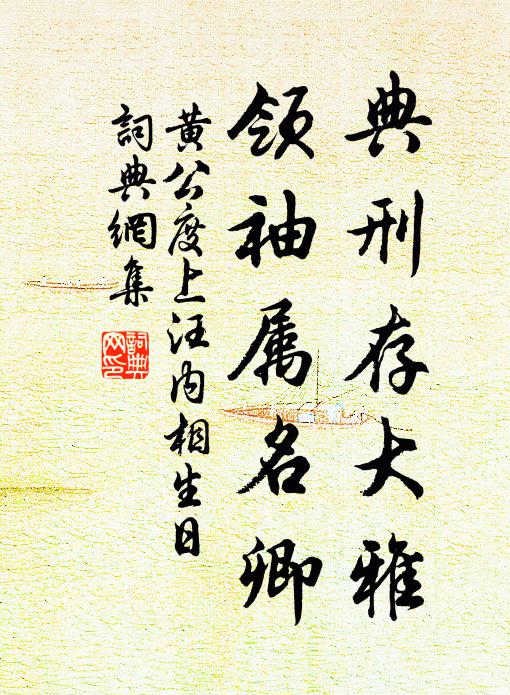 典刑存大雅
领袖属名卿
黄公度上汪内相生日
詞典網集
詞典网印